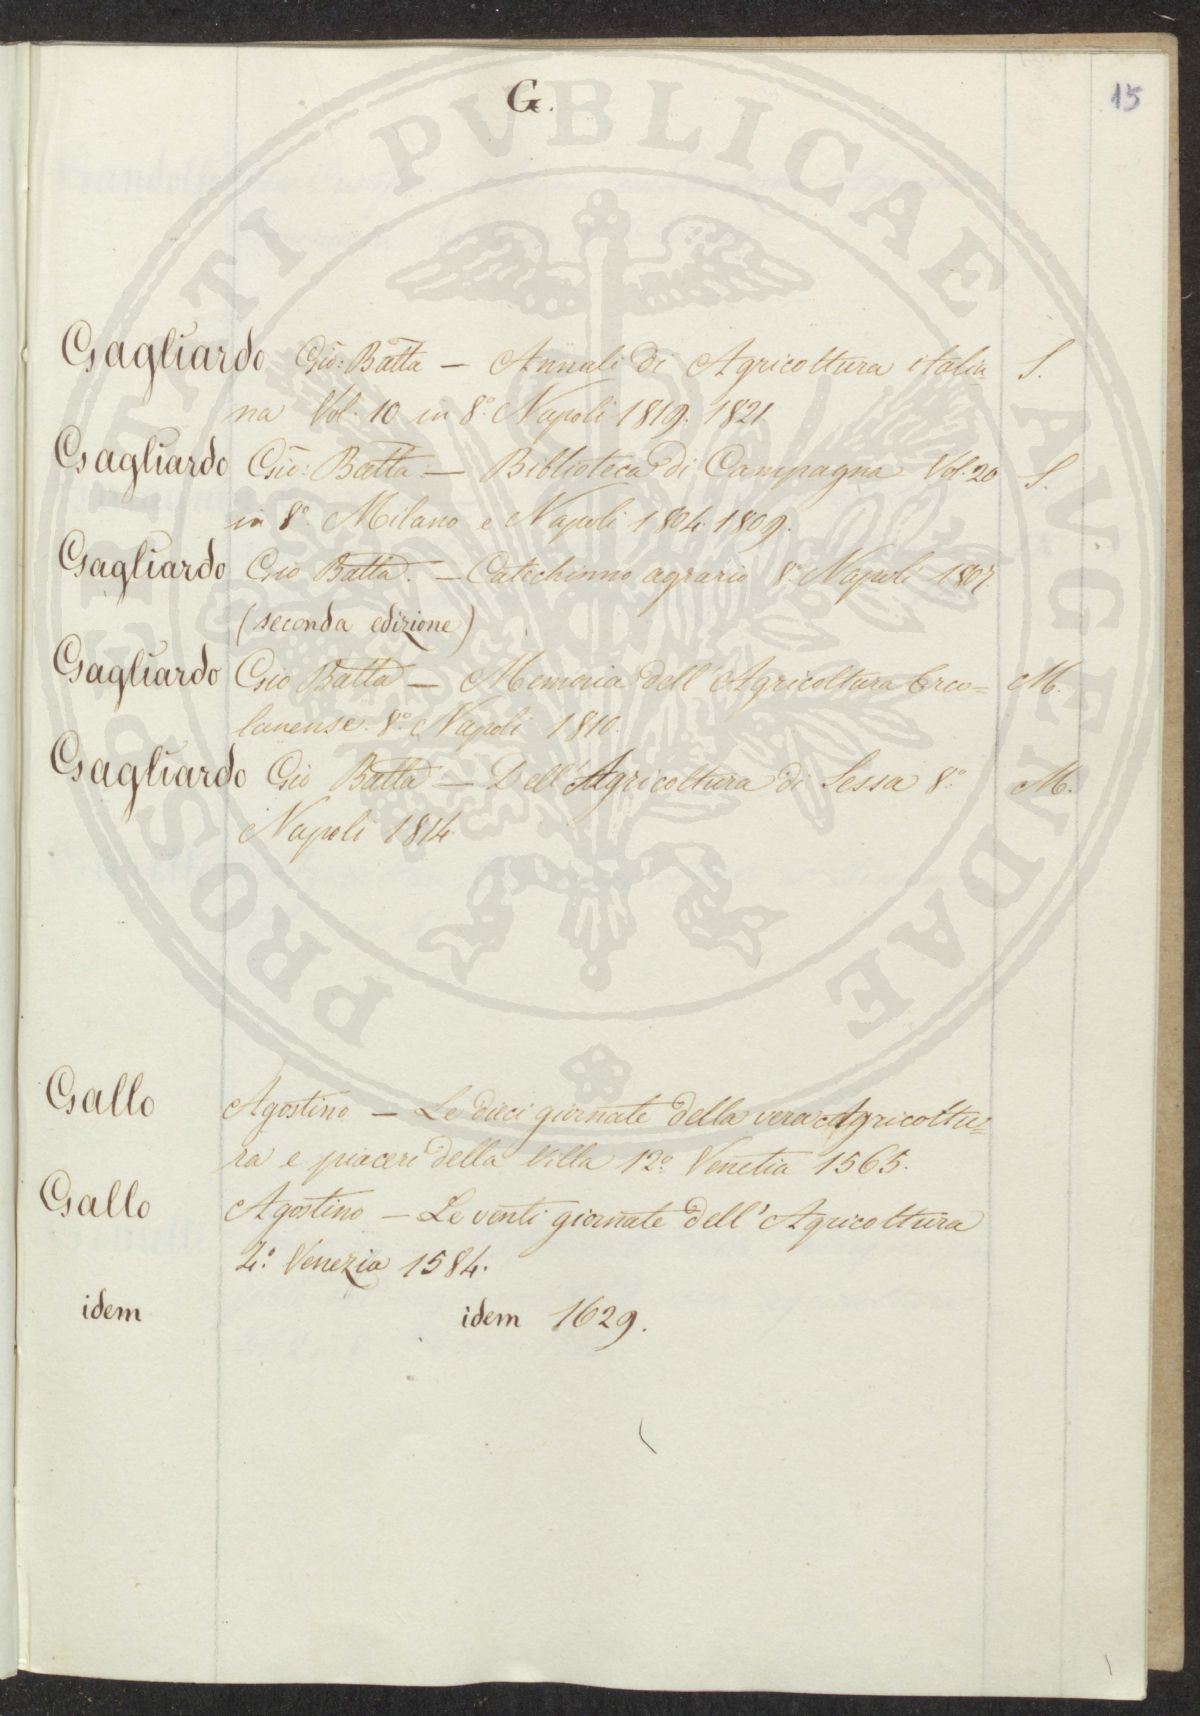 G.
15
Gagliardo Gio: Batta — Annali di Agricoltura italia= S.
na Vol. 10 in 8.° Napoli 1819. 1821.
Gagliardo Gio: Batta: — Biblioteca di Campagna Vol. 20 S.
in 8.° Milano e Napoli 1804. 1809.
Gagliardo Gio Batta. — Catechismo agrario 8.° Napoli 1807.
(seconda edizione)
Gagliardo Gio Batta — Memoria dell'Agricoltura Erco= M.
lanense. 8.° Napoli 1810.
Gagliardo Gio Batta — Dell'Agricoltura di Sessa 8.° M.
Napoli 1814.
Gallo Agostino — Le dieci giornate della vera Agricoltu=
ra e piaceri della Villa 12.° Venetia 1565.
Gallo Agostino — Le venti giornate dell'Agricoltura
4.° Venezia 1584.
idem idem 1629.
PROSPERITATI PVBLICAE AVGENDAE